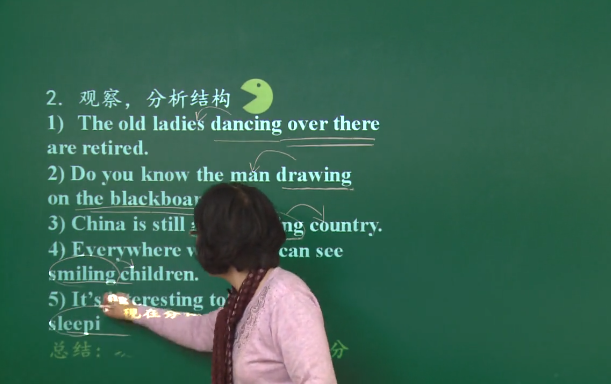 2. 观察，分析结构
1) The old ladies dancing over there
are retired.
2) Do you know the man drawing
on the blackboar
3) China is still ng country.
4) Everywhere can see
smiling children.
5) It's teresting to
sleepi
现在分
总结： 分